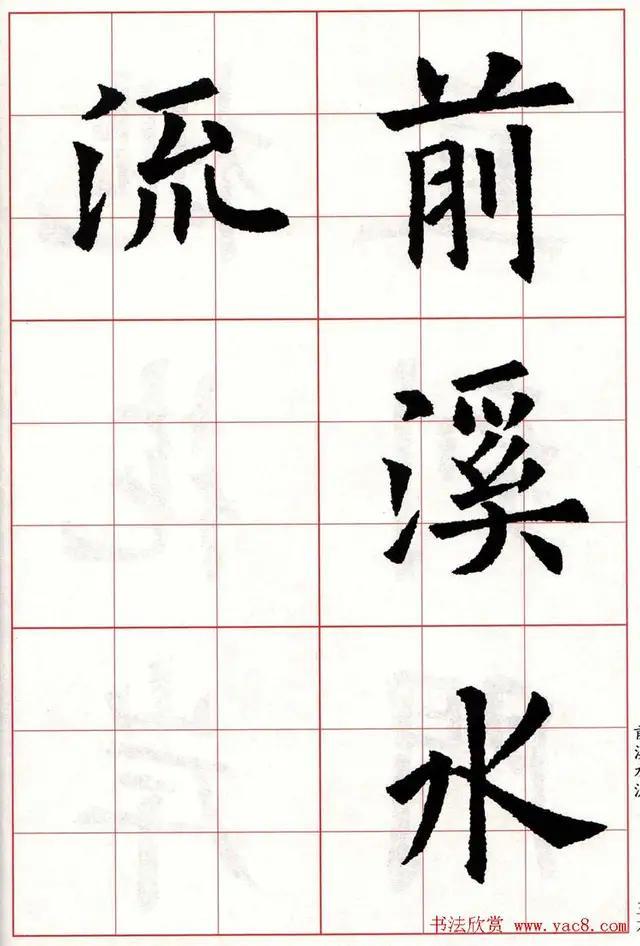 前溪水
流
前溪水流
书法欣赏 www.yac8.com